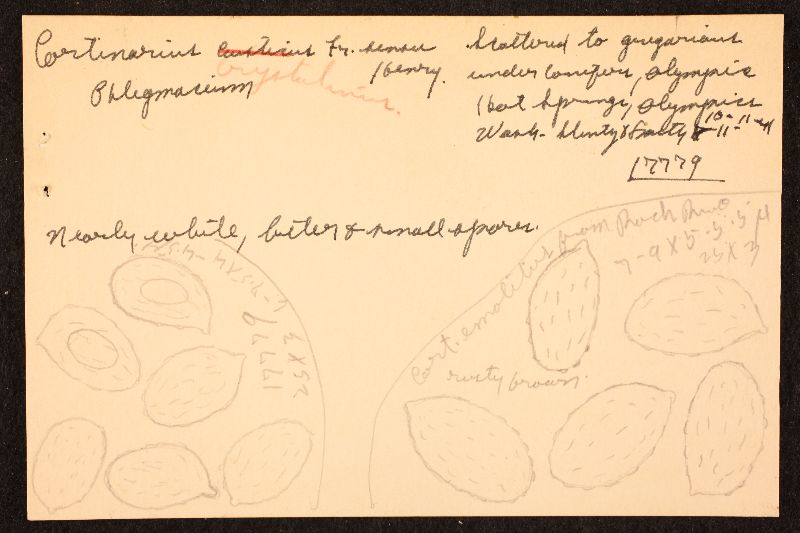 Cortinarius causticus Fr. sensu
Henry.
crystallinus.
Phlegmacium
Scattered to gregarious
under conifers, Olympic
Hot Springs, Olympics
Wash. Huntz & Smith 10-11-41
17779
Nearly white, bitter & small spores.
6-7.5 X 4-4.5 μ
17779
25 X 3
Cort. emolitus from Rock River
7-9 X 5-5.5 μ
25 X 3
rusty brown.